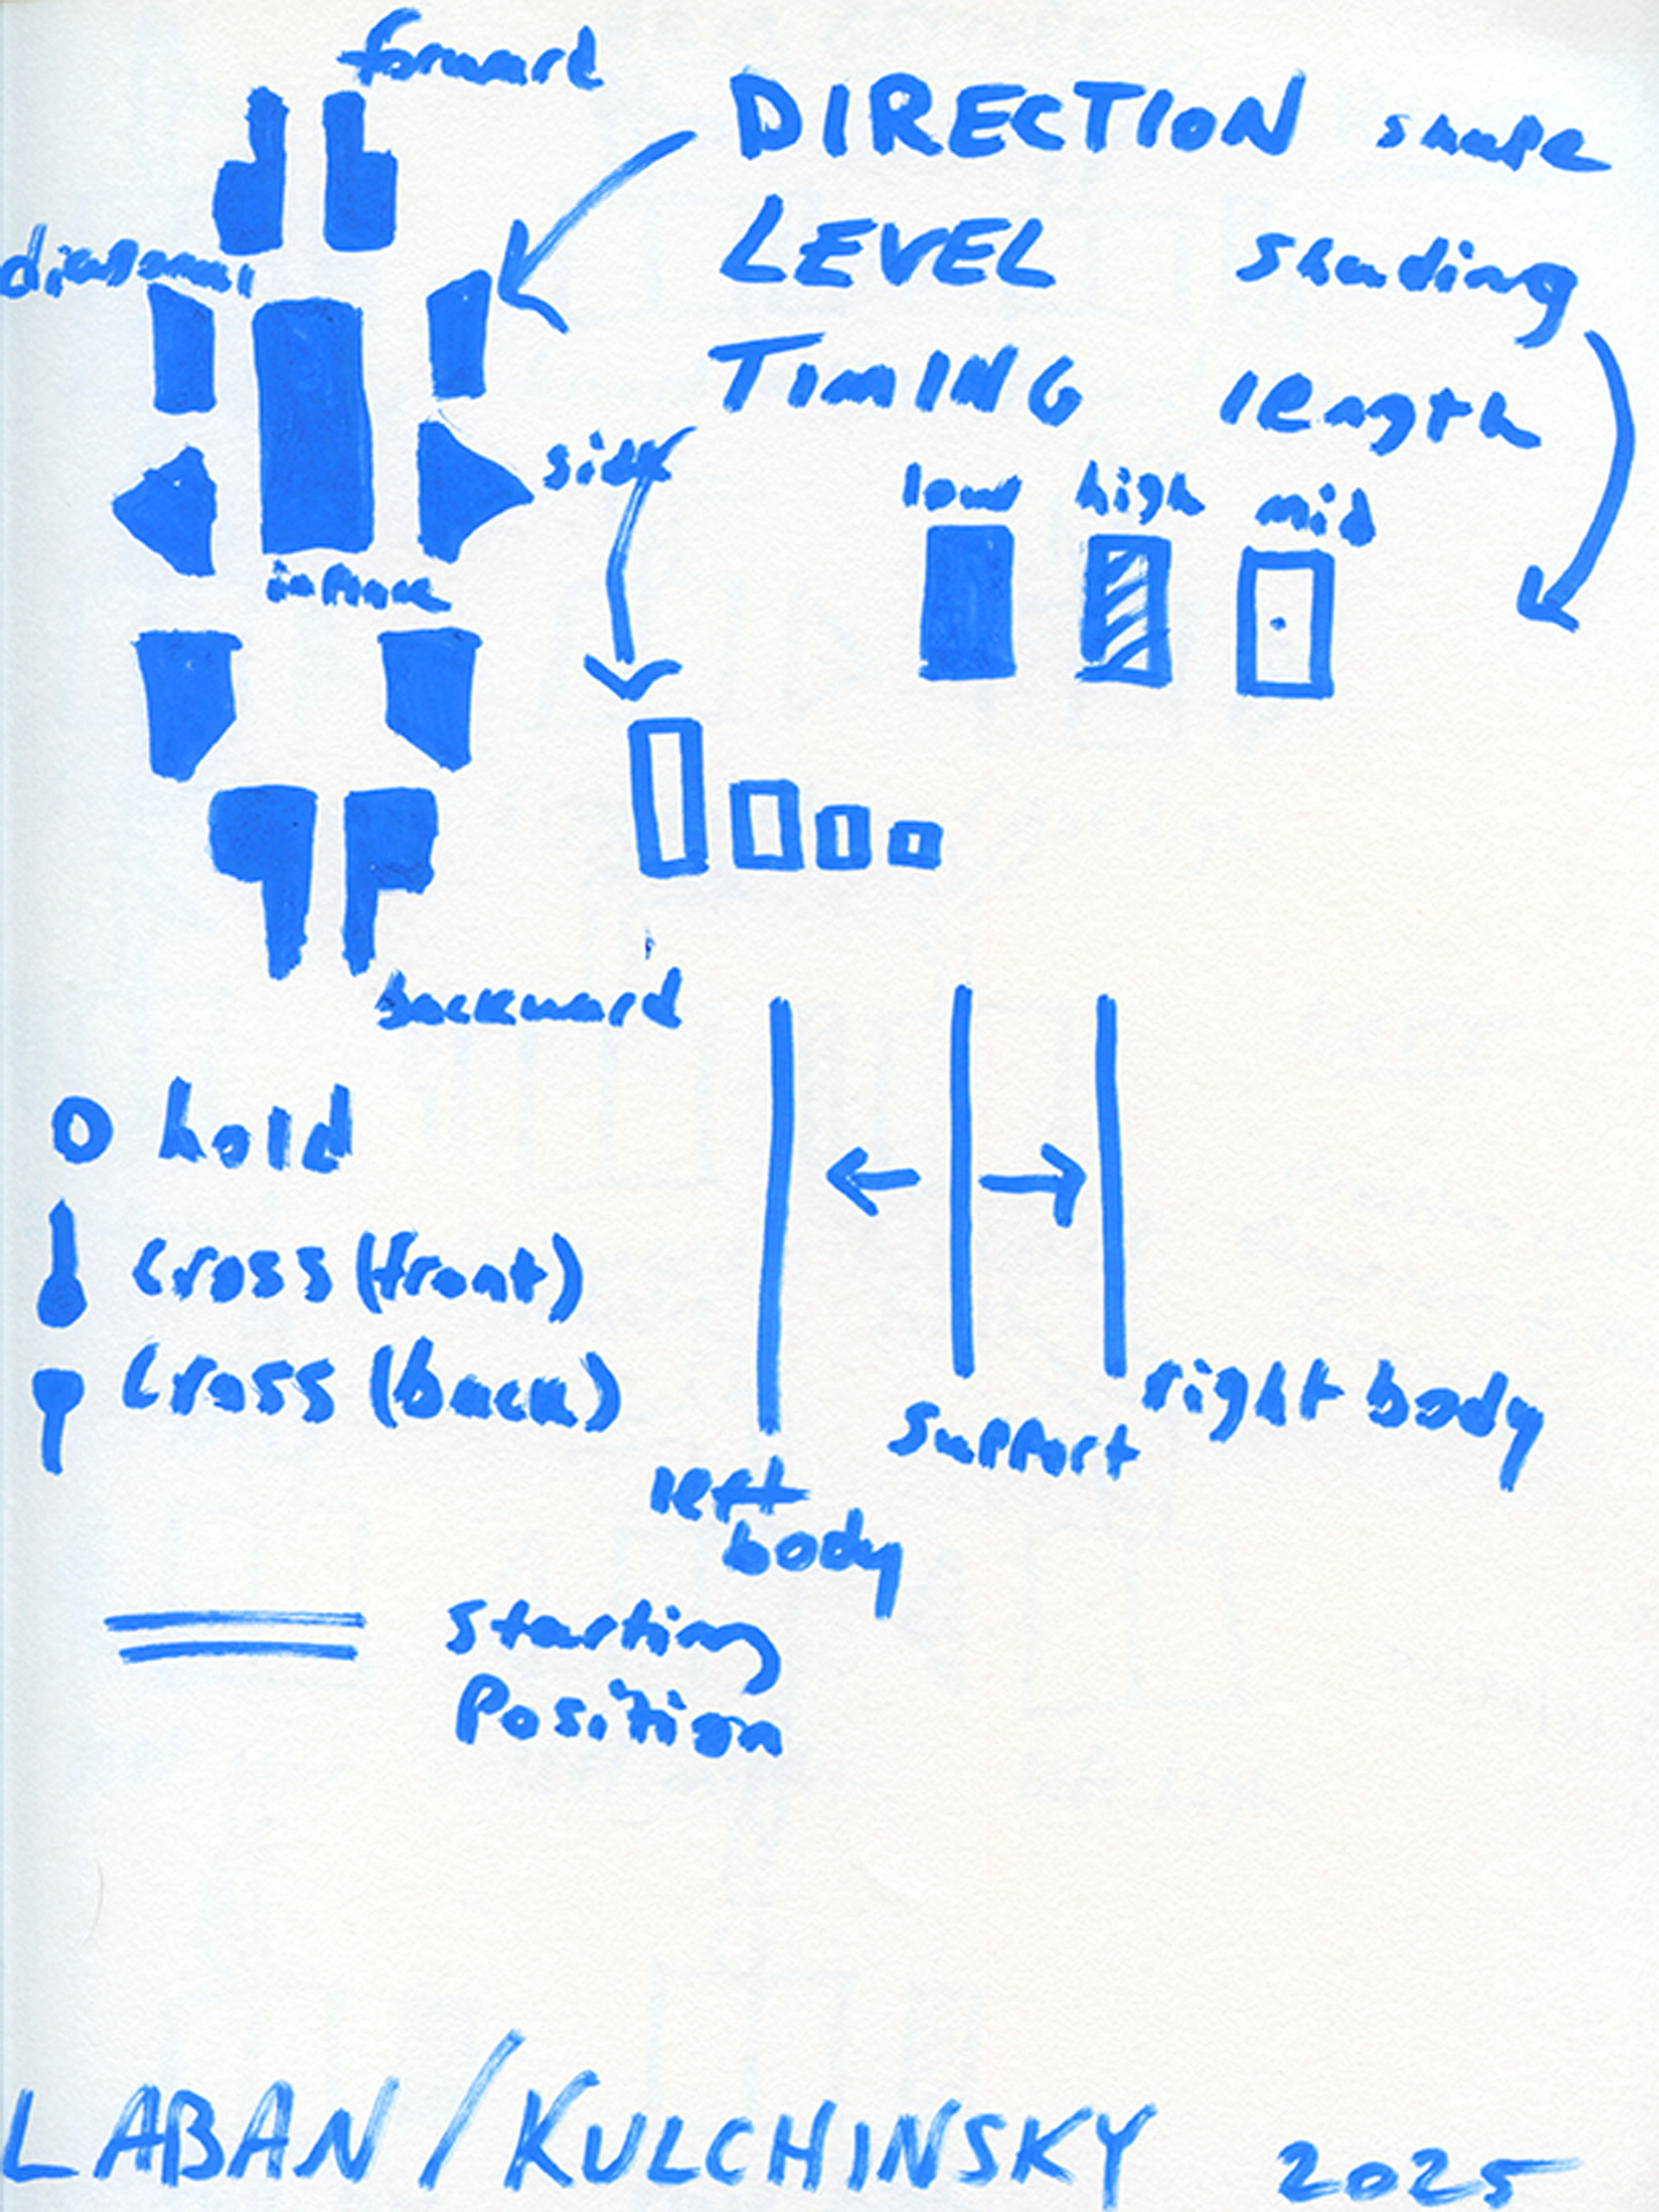 forward
DIRECTION shape
LEVEL shading
diagonal
TIMING length
side
low high mid
in place
backward
hold
cross (front)
cross (back)
support
right body
left
body
starting
position
LABAN / KULCHINSKY 2025